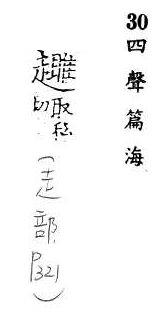 30 四聲篇海
取私切
(走部
P321)